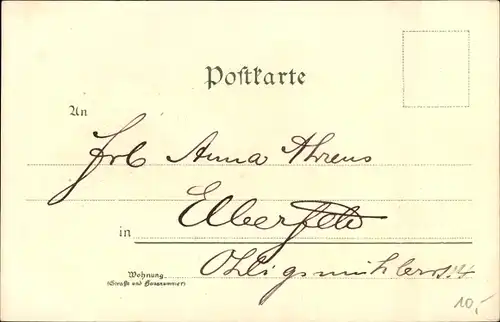 Postkarte
An
Frl Anna Ahrens
in Elberfeld
Wohnung
(Straße und Hausnummer)
10,-